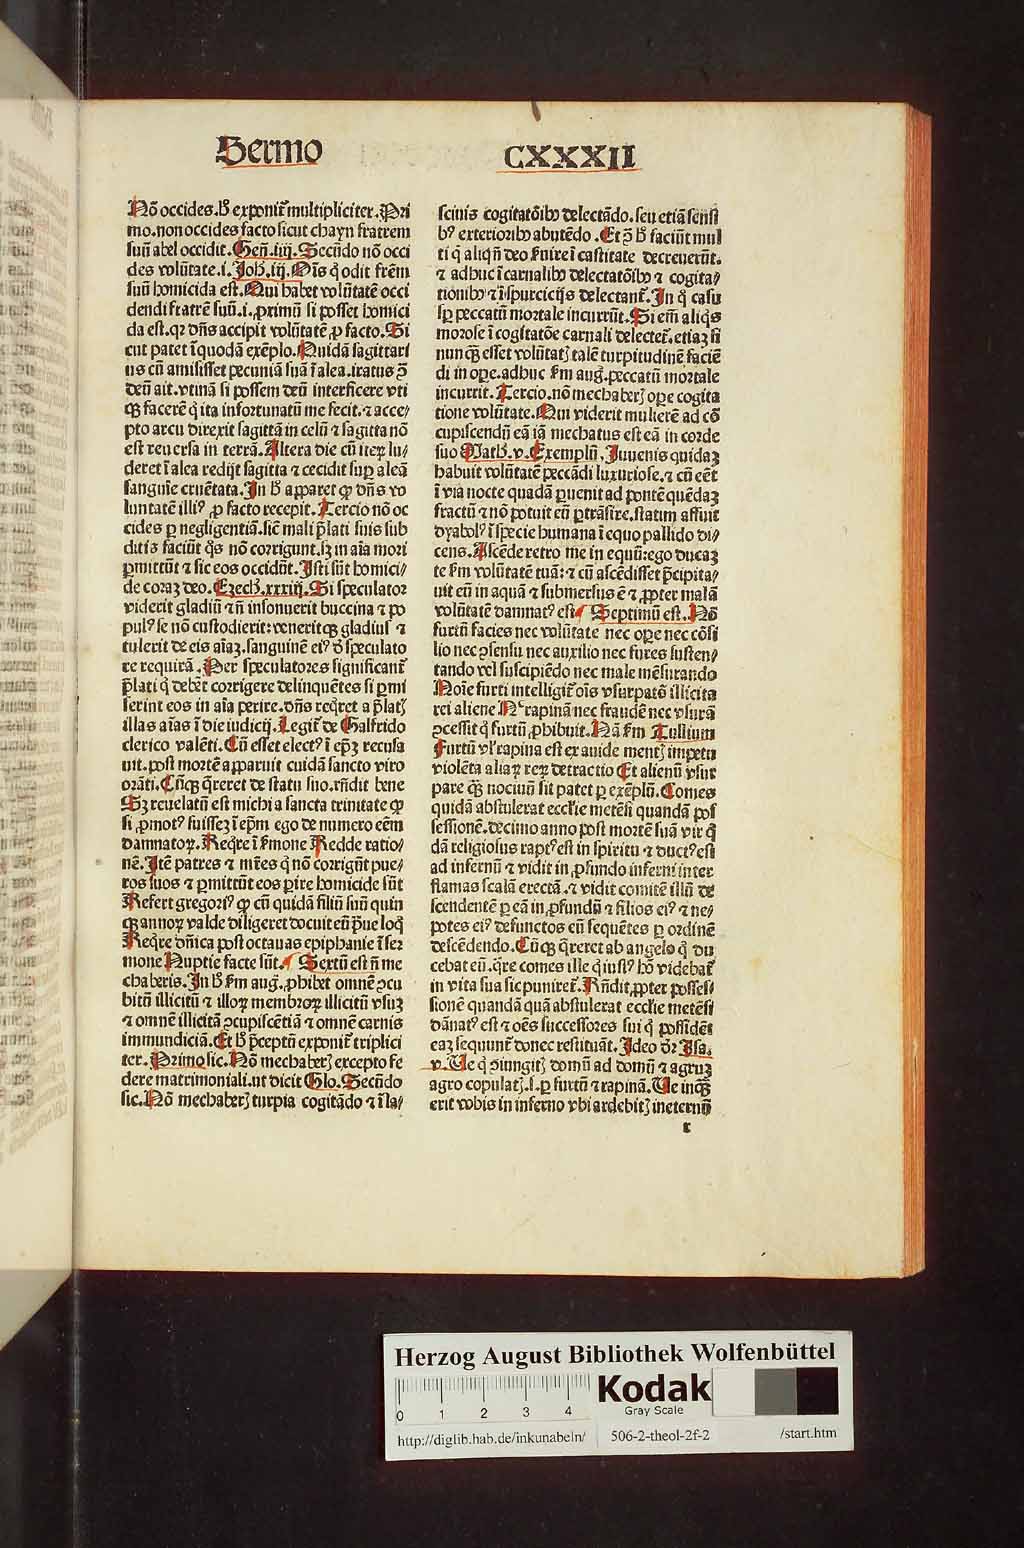 Sermo CXXXII
Nō occides. h̄ exponit᷑ multipliciter. Pri
mo. non occides facto sicut chayn fratrem
suū abel occidit. Gen̄. iiij. Secūdo nō occi
des volūtate. i. Joh̄. iij. Om̄s q̇ odit frēm
suū homicida est. Qui habet volūtatē occi
dendi fratrē suū. i. primū si posset homici
da est. qꝛ dn̄s accipit volūtatē ꝓ facto. Si
cut patet ī quodā exēplo. Quidā sagittari
us cū amisisset pecuniā suā ī alea. iratus ↄ̄
deū ait. vtinā si possem deū interficere vti
qꝫ facerē q̇ ita infortunatū me fecit. ⁊ acce/
pto arcu direxit sagittā in celū ⁊ sagitta nō
est reuersa in terrā. Altera die cū iteꝝ lu/
deret ī alea redijt sagitta ⁊ cecidit suꝑ aleā
sanguīe cruētata. In h̄ apparet ꝙ dn̄s vo
luntatē illiꝰ ꝓ facto recepit. Tercio nō oc
cides ꝑ negligentiā. sic̄ mali p̄lati suis sub
ditis faciūt q̇s nō corrigunt. sꝫ in aīa mori
ꝑmittūt ⁊ sic eos occidūt. Isti sūt homici/
de coraꝫ deo. Ezech̄. xxxiij. Si speculator
viderit gladiū ⁊ n̄ insonuerit buccina ⁊ po
pulꝰ se nō custodierit: veneritqꝫ gladius ⁊
tulerit de eis aīaꝫ. sanguinē eiꝰ d̄ speculato
re requirā. Per speculatores significant᷑
p̄lati q̇ debēt corrigere delinquētes si ꝑmi
serint eos in aīa perire. dn̄s reqret a p̄latꝭ
illas aīas ī die iudicij. Legit᷑ de Galfrido
clerico valēti. Cū esset electꝰ ī ep̄ꝫ recusa
uit. post mortē apparuit cuidā sancto viro
orāti. Cūqꝫ q̄reret de statu suo. rn̄dit bene
Sꝫ reuelatū est michi a sancta trinitate ꝙ
si ꝓmotꝰ fuissēꝫ ī ep̄m ego de numero eēm
damnatoꝝ. Reqre ī s̄mone Redde ratio/
nē. Itē patres ⁊ mr̄es q̇ nō corrigūt pue/
ros suos ⁊ ꝑmittūt eos ꝑire homicide sūt
Refert gregoriꝰ ꝙ cū quidā filiū suū quin
qꝫ annoꝝ valde diligeret docuit eū p̄ue loq̇
Reqre dn̄ica post octauas epiphanie ī ser
mone Nuptie facte sūt. Sextū est n̄ me
chaberis. In h̄ s̄m aug̅. ꝓhibet omnē ↄcu
bitū illicitū ⁊ illoꝝ membroꝝ illicitū vsuꝫ
⁊ omnē illicitā ↄcupiscētiā ⁊ omnē carnis
immundiciā. Et h̄ p̄ceptū exponit᷑ triplici
ter. Primo sic. Nō mechaberꝭ excepto fe
dere matrimoniali. ut dicit Glo. Secūdo
sic. Nō mechaberꝭ turpia cogitādo ⁊ ī la/
sciuis cogitatōibꝫ delectādo. seu etiā sensi
bꝰ exterioribꝫ abutēdo. Et ↄ̄ h̄ faciūt mul
ti q̇ aliqn̄ deo s̄uire ī castitate decreuerūt.
⁊ adhuc ī carnalibꝫ delectatōibꝫ ⁊ cogita/
tionibꝫ ⁊ ī spurcicijs delectant᷑. In q̇ casu
sꝑ peccatū mortale incurrūt. Si em̄ aliq̇s
morose ī cogitatōe carnali delectet᷑. etiaꝫ si
nunqꝫ esset volūtatꝭ talē turpitudinē faciē
di in oꝑe. adhuc s̄m aug̅. peccatū mortale
incurrit. Tercio. nō mechaberꝭ oꝑe cogita
tione volūtate. Qui viderit mulierē ad cō
cupiscendū eā iā mechatus est eā in corde
suo Math̄. v. Exemplū. Juuenis quidaꝫ
habuit volūtatē peccādi luxuriose. ⁊ cū eēt
ī via nocte quadā ꝑuenit ad pontē quēdaꝫ
fractū ⁊ nō potuit eū ꝑtrāsire. statim affuit
dyabolꝰ ī specie humana ī equo pallido di/
cens. Ascēde retro me in equū: ego ducaꝫ
te s̄m volūtatē tuā: ⁊ cū ascēdisset p̄cipita/
uit eū in aquā ⁊ submersus ē ⁊ ꝓpter malā
volūtatē damnatꝰ est. Septimū est. Nō
furtū facies nec volūtate nec oꝑe nec cōsi
lio nec ↄsensu nec auxilio nec fures susten/
tando vel suscipiēdo nec male mēsurando
Noīe furti intelligit᷑ oīs vsurpatō illicita
rei aliene N̄ᶜ rapinā nec fraudē nec vsurā
ↄcessit q̇ furtū ꝓhibuit. Nā s̄m Tullium
Furtū vꝉ rapina est ex auide mentꝭ impetu
violēta aliaꝝ reꝝ detractio Et alienū vsur
pare qꝫ nociuū sit patet ꝑ exēplū. Comes
quidā abstulerat ecclie metēsi quandā pos
sessionē. decimo anno post mortē suā vir q̇
dā religiosus raptꝰ est in spiritu ⁊ ductꝰ est
ad infernū ⁊ vidit in ꝓfundo inferni inter
flamas scalā erectā. ⁊ vidit comitē illū de
scendentē ꝑ eā in ꝓfundū ⁊ filios eiꝰ ⁊ ne/
potes eiꝰ defunctos eū sequētes ꝑ ordinē
descēdendo. Cūqꝫ q̄reret ab angelo q̇ du
cebat eū. q̄re comes ille q̇ iustꝰ hō videbat᷑
in vita sua sic puniret᷑. Rn̄dit. ꝓpter posses/
sionē quandā quā abstulerat ecclie metēsi
dānatꝰ est ⁊ oēs successores sui q̇ possidēt
eaꝫ sequunt᷑ donec restituāt. Ideo dr̄ Isa.
v. Ue q̇ ↄiungitꝭ domū ad domū ⁊ agruꝫ
agro copulatꝭ. s. ꝑ furtū ⁊ rapinā. Ue inqꝫ
erit vobis in inferno vbi ardebitꝭ in eternū
r
Herzog August Bibliothek Wolfenbüttel
0 1 2 3 4
Kodak
Gray Scale
http://diglib.hab.de/inkunabeln/ 506-2-theol-2f-2 /start.htm